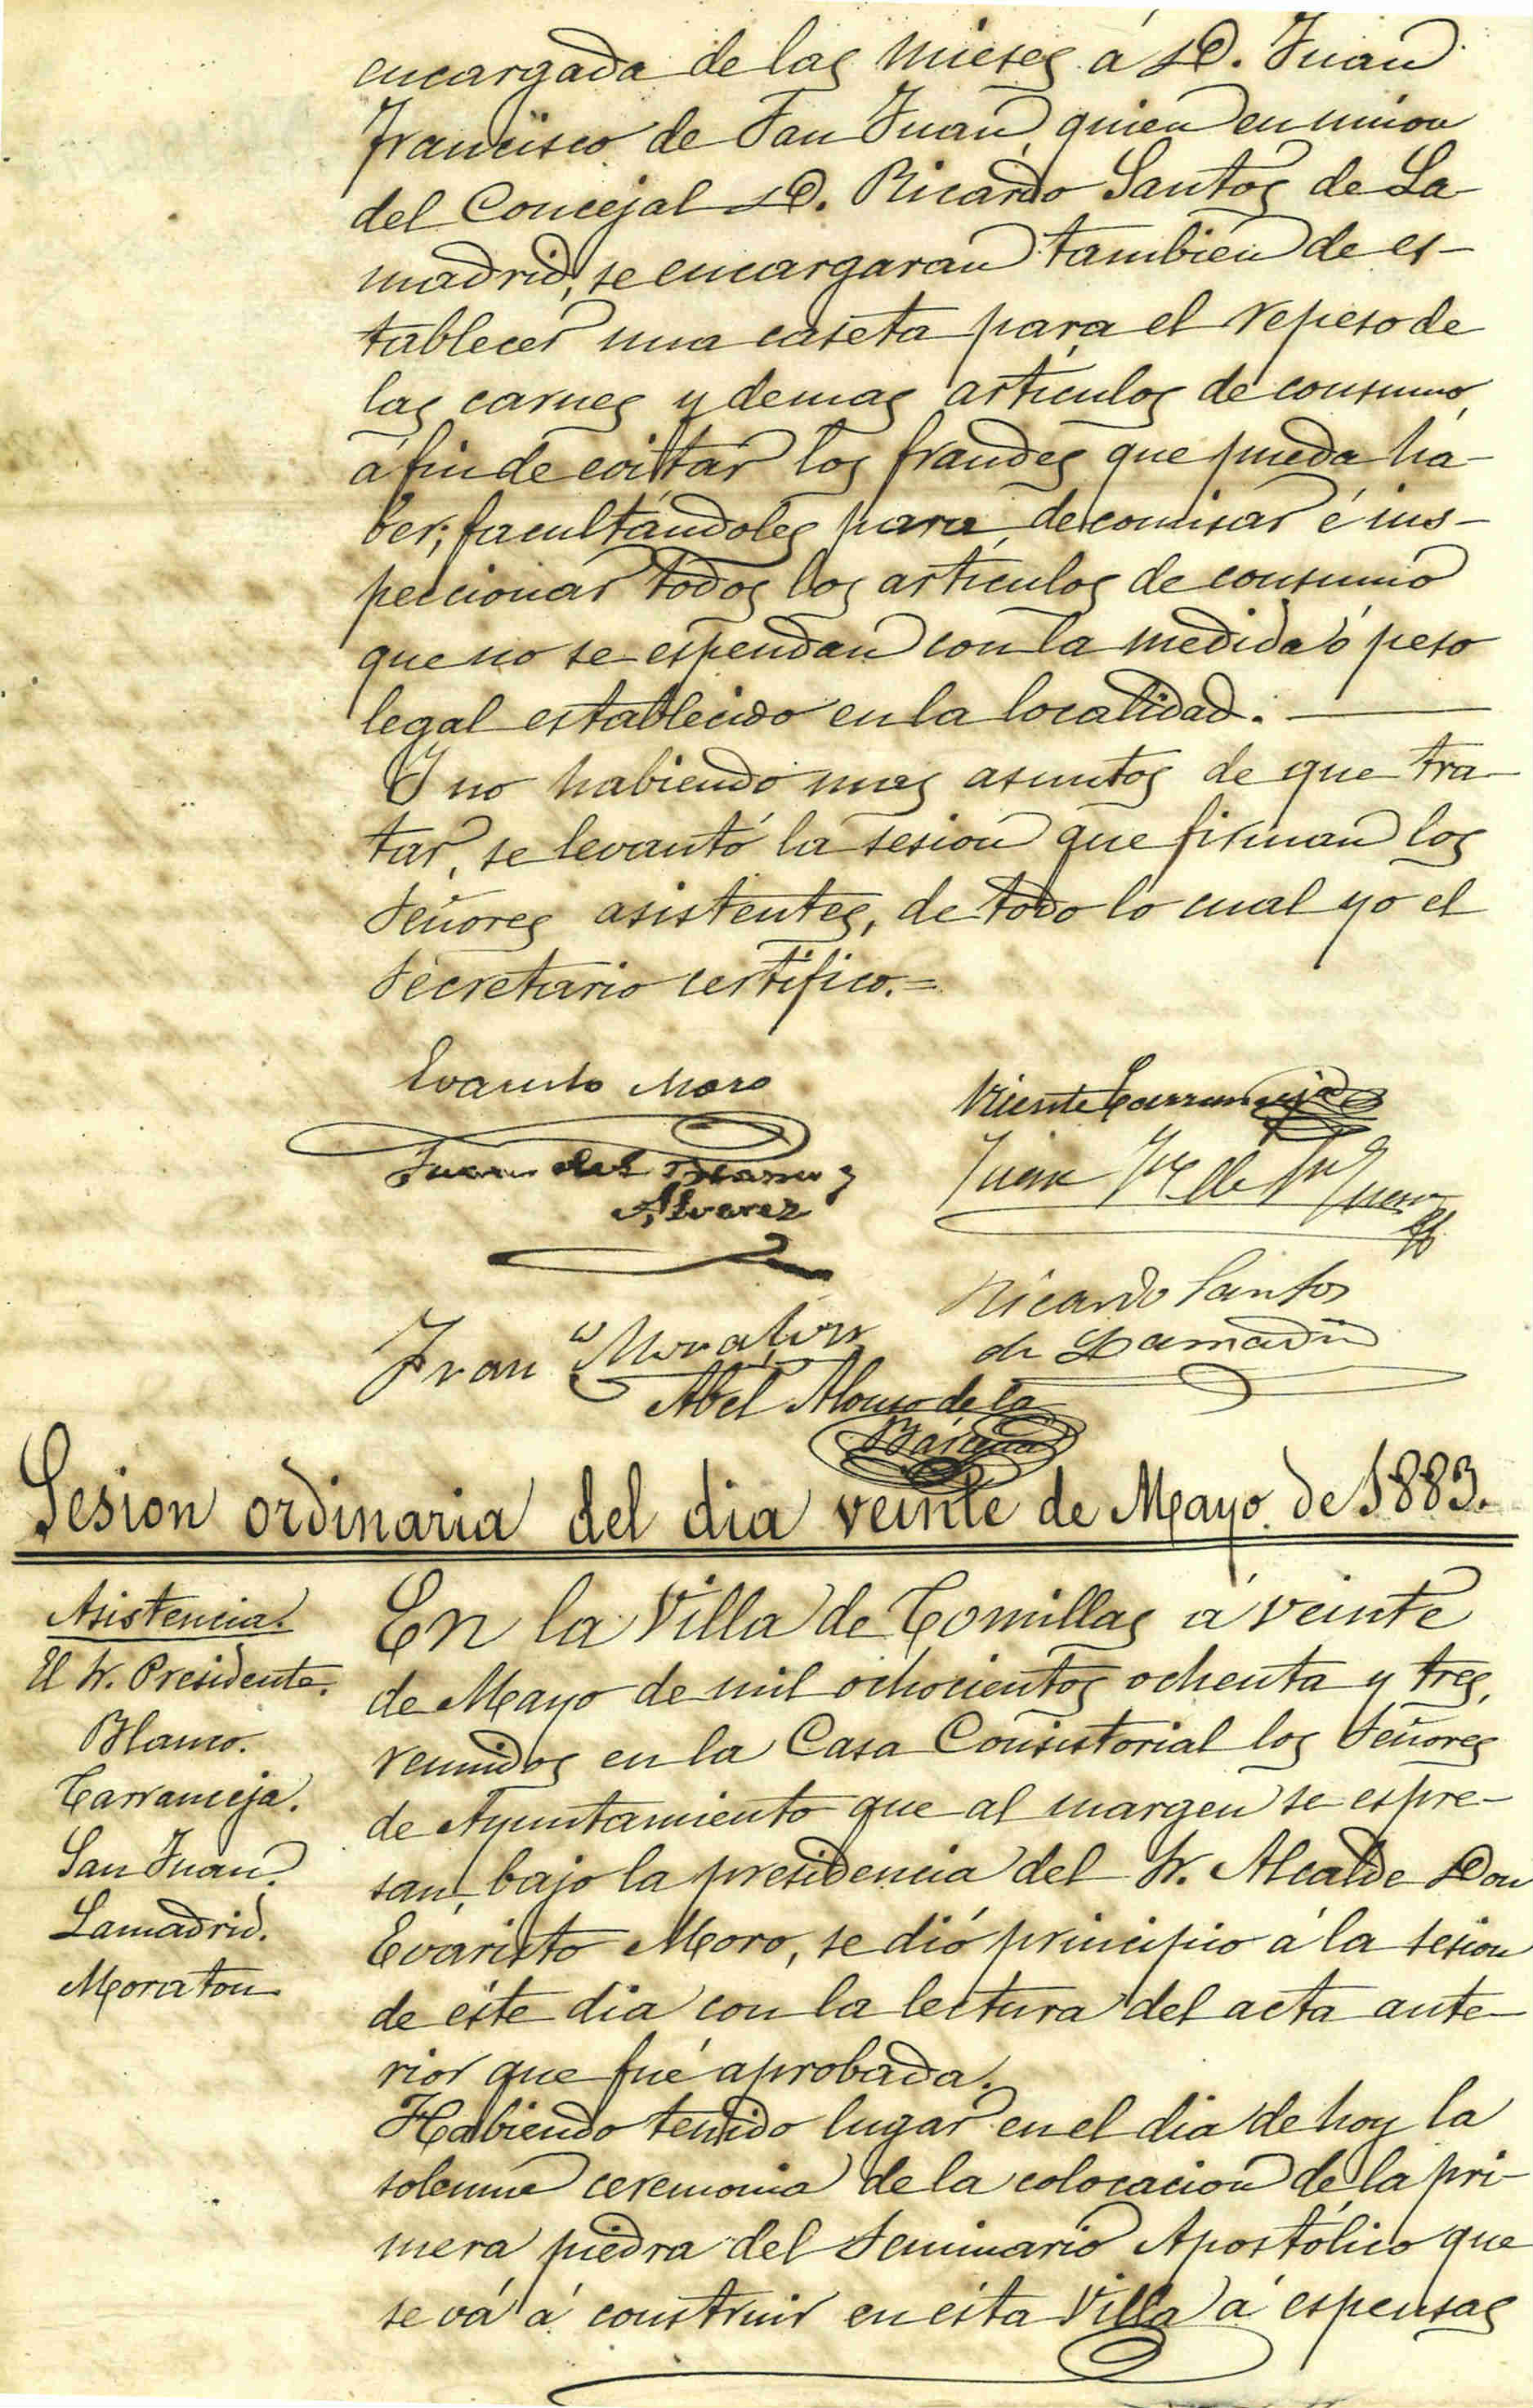 encargada de las mieses á D. Juan
Francisco de San Juan, quien en union
del Concejal D. Ricardo Santos de La-
madrid, se encargaran tambien de es-
tablecer una caseta para el repeso de
las carnes y demas articulos de consumo,
á fin de evitar los fraudes que pueda ha-
ber; facultándoles para decomisar é ins-
peccionar todos los articulos de consumo
que no se espendan con la medida ó peso
legal establecido en la localidad.
Y no habiendo mas asuntos de que tra-
tar, se levantó la sesion que firman los
Señores asistentes, de todo lo cual yo el
Secretario certifico.=
Evaristo Moro
Vicente Carranceja
Juan del Blanco y
Alvarez
Juan Fco de San Juan
Ricardo Santos
de Lamadrid
Franco Moraton
Abel Alonso de la
Bárcena
Sesion ordinaria del dia veinte de Mayo de 1883.
Asistencia.
El Sr. Presidente.
Blanco.
Carranceja.
San Juan.
Lamadrid.
Moraton.
En la Villa de Comillas á veinte
de Mayo de mil ochocientos ochenta y tres,
reunidos en la Casa Consistorial los Señores
de Ayuntamiento que al margen se espre-
san, bajo la presidencia del Sr. Alcalde Don
Evaristo Moro, se dió principio á la sesion
de éste dia con la lectura del acta ante-
rior que fué aprobada.
Habiendo tenido lugar en el dia de hoy la
solemne ceremonia de la colocacion de la pri-
mera piedra del Seminario Apostólico que
se vá á construir en ésta Villa á espensas